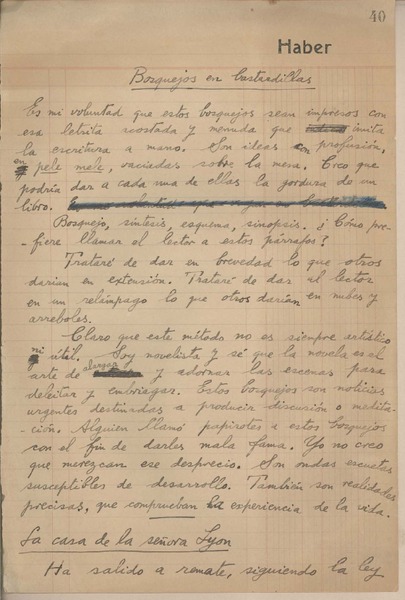 40
Haber
Bosquejos en bastardillas
Es mi voluntad que estos bosquejos sean impresos con
esa letrita acostada y menuda que imita
la escritura a mano. Son ideas con profusión,
en pele mele, vaciadas sobre la mesa. Creo que
podría dar a cada una de ellas la gordura de un
libro.
Bosquejo, síntesis, esquema, sinopsis. ¿Cómo pre-
-fiere llamar el lector a estos párrafos?
Trataré de dar en brevedad lo que otros
darían en extensión. Trataré de dar al lector
en un relámpago lo que otros darían en nubes y
arreboles.
Claro que este método no es siempre artístico
ni útil. Soy novelista y sé que la novela es el
arte de alargar y adornar las escenas para
deleitar y embriagar. Estos bosquejos son noticias
urgentes destinadas a producir discusión o medita-
-ción. Alguien llamó papirotes a estos bosquejos
con el fin de darles mala fama. Yo no creo
que merezcan ese desprecio. Son ondas escuetas
susceptibles de desarrollo. También son realidades
precisas, que comprueban la experiencia de la vida.
La casa de la señora Lyon
Ha salido a remate, siguiendo la ley